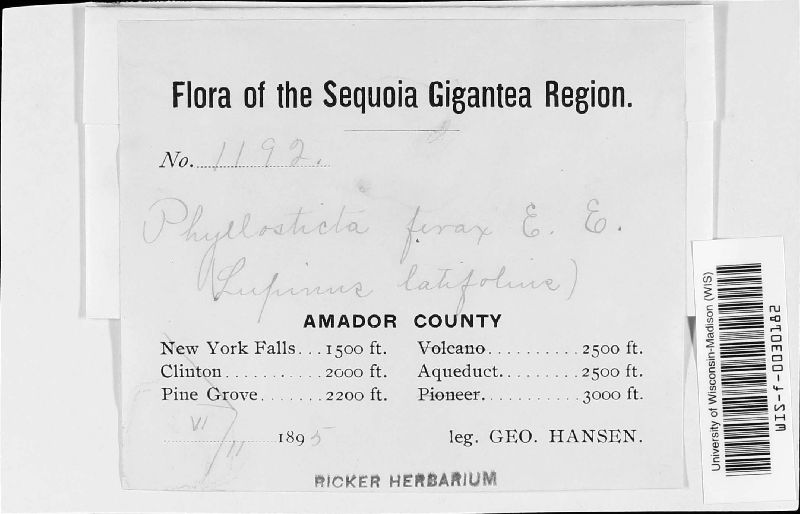 Flora of the Sequoia Gigantea Region.
No. 1192.
Phyllosticta ferax E. E.
(Lupinus latifolius)
AMADOR COUNTY
New York Falls...1500 ft. Volcano..........2500 ft.
Clinton...........2000 ft. Aqueduct.........2500 ft.
Pine Grove.......2200 ft. Pioneer...........3000 ft.
VI/11 1895 leg. GEO. HANSEN.
RICKER HERBARIUM
University of Wisconsin-Madison (WIS)
WIS-f-0030182